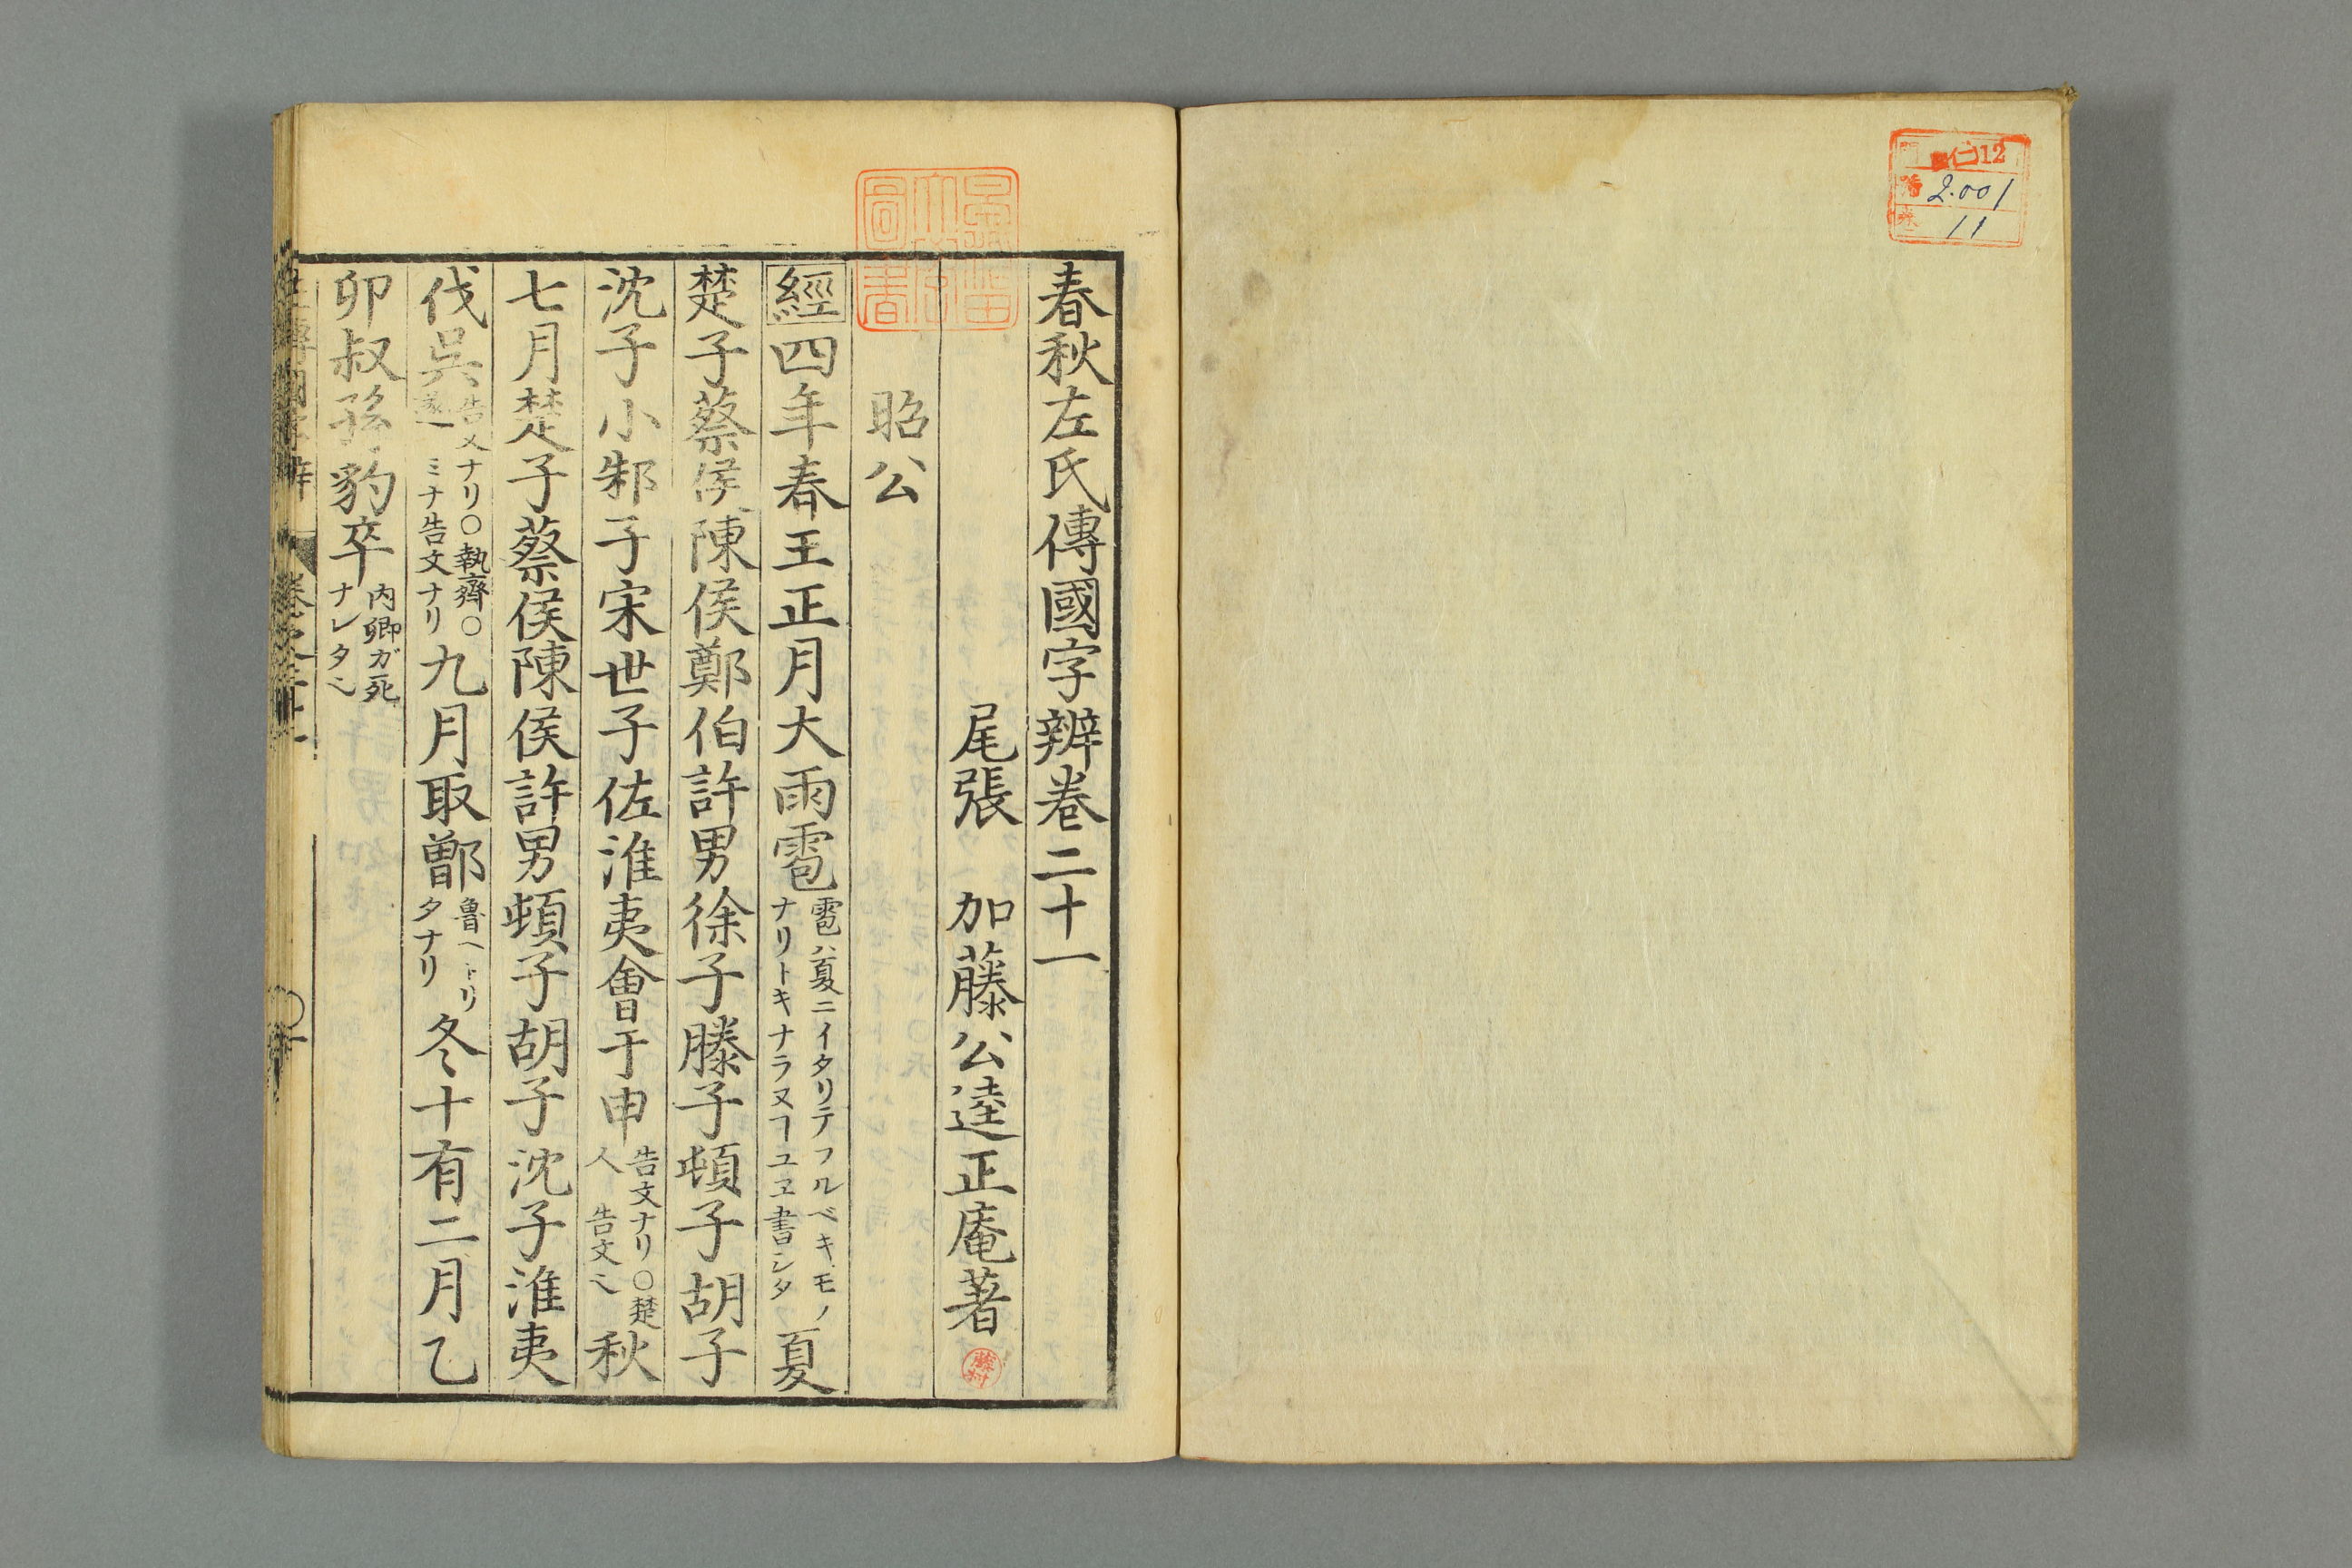 仁12
2.001
11
春秋左氏傳國字辨卷二十一
尾張 加藤公逵正庵著
藤村
昭公
經四年春王正月大雨雹雹ハ夏ニイタリテフルベキモノナリトキナラヌヿユヱ書シタ夏
楚子蔡侯陳侯鄭伯許男徐子滕子頓子胡子
沈子小邾子宋世子佐淮夷會于申告文ナリ〇楚人告文也秋
七月楚子蔡侯陳侯許男頓子胡子沈子淮夷
伐吳告文ナリ〇執齊〇遂ミナ告文ナリ九月取鄫魯ヘトリタナリ冬十有二月乙
卯叔孫豹卒内卿ガ死ナレタ也